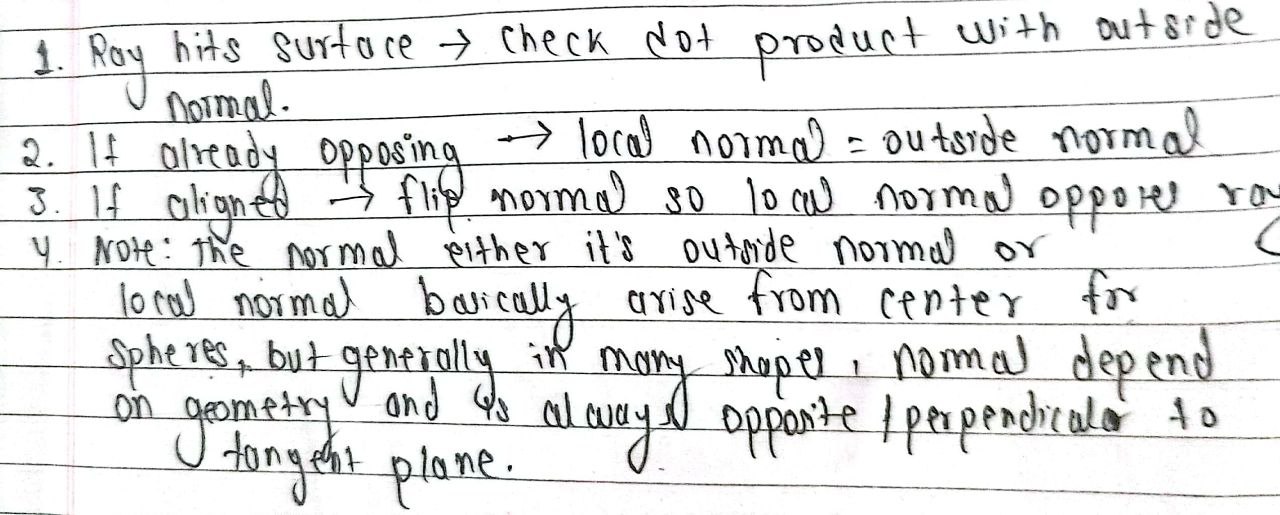 1. Ray hits surface → check dot product with outside
normal.
2. If already opposing → local normal = outside normal
3. If aligned → flip normal so local normal opposes ray
4. Note: the normal either it's outside normal or
local normal basically arise from center for
spheres, but generally in many shapes, normal depend
on geometry and is always opposite / perpendicular to
tangent plane.